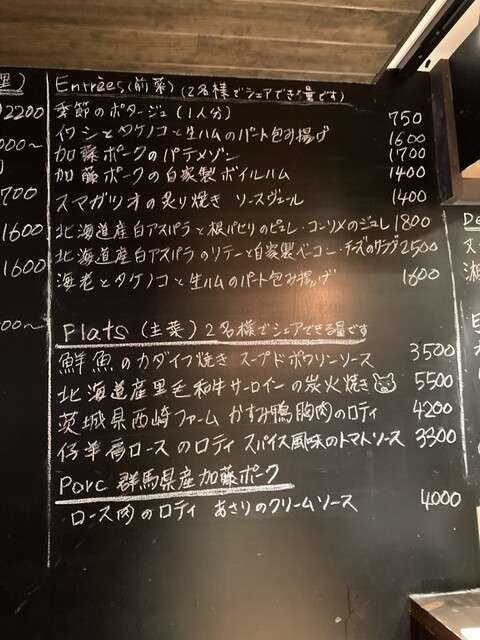 Entrées (前菜) (2名様でシェアできる量です)
季節のポタージュ (1人分) 750
イワシとタケノコと生ハムのパート包み揚げ 1600
加藤ポークのパテメゾン 1700
加藤ポークの自家製ボイルハム 1400
スマガツオの炙り焼き ソースヴェール 1400
北海道産白アスパラと根パセリのピュレ・コンソメのジュレ 1800
北海道産白アスパラのリテーと自家製ベーコン・チーズのサラダ 2500
海老とタケノコと生ハムのパート包み揚げ 1600
Plats (主菜) 2名様でシェアできる量です
鮮魚のカダイフ焼き スープドポワソンソース 3500
北海道産黒毛和牛サーロインの炭火焼き 5500
茨城県西崎ファーム かすみ鴨胸肉のロティ 4200
仔羊肩ロースのロティ スパイス風味のトマトソース 3300
Porc 群馬県産加藤ポーク
ロース肉のロティ あさりのクリームソース 4000
2200
000~
700
1600
1600
00~